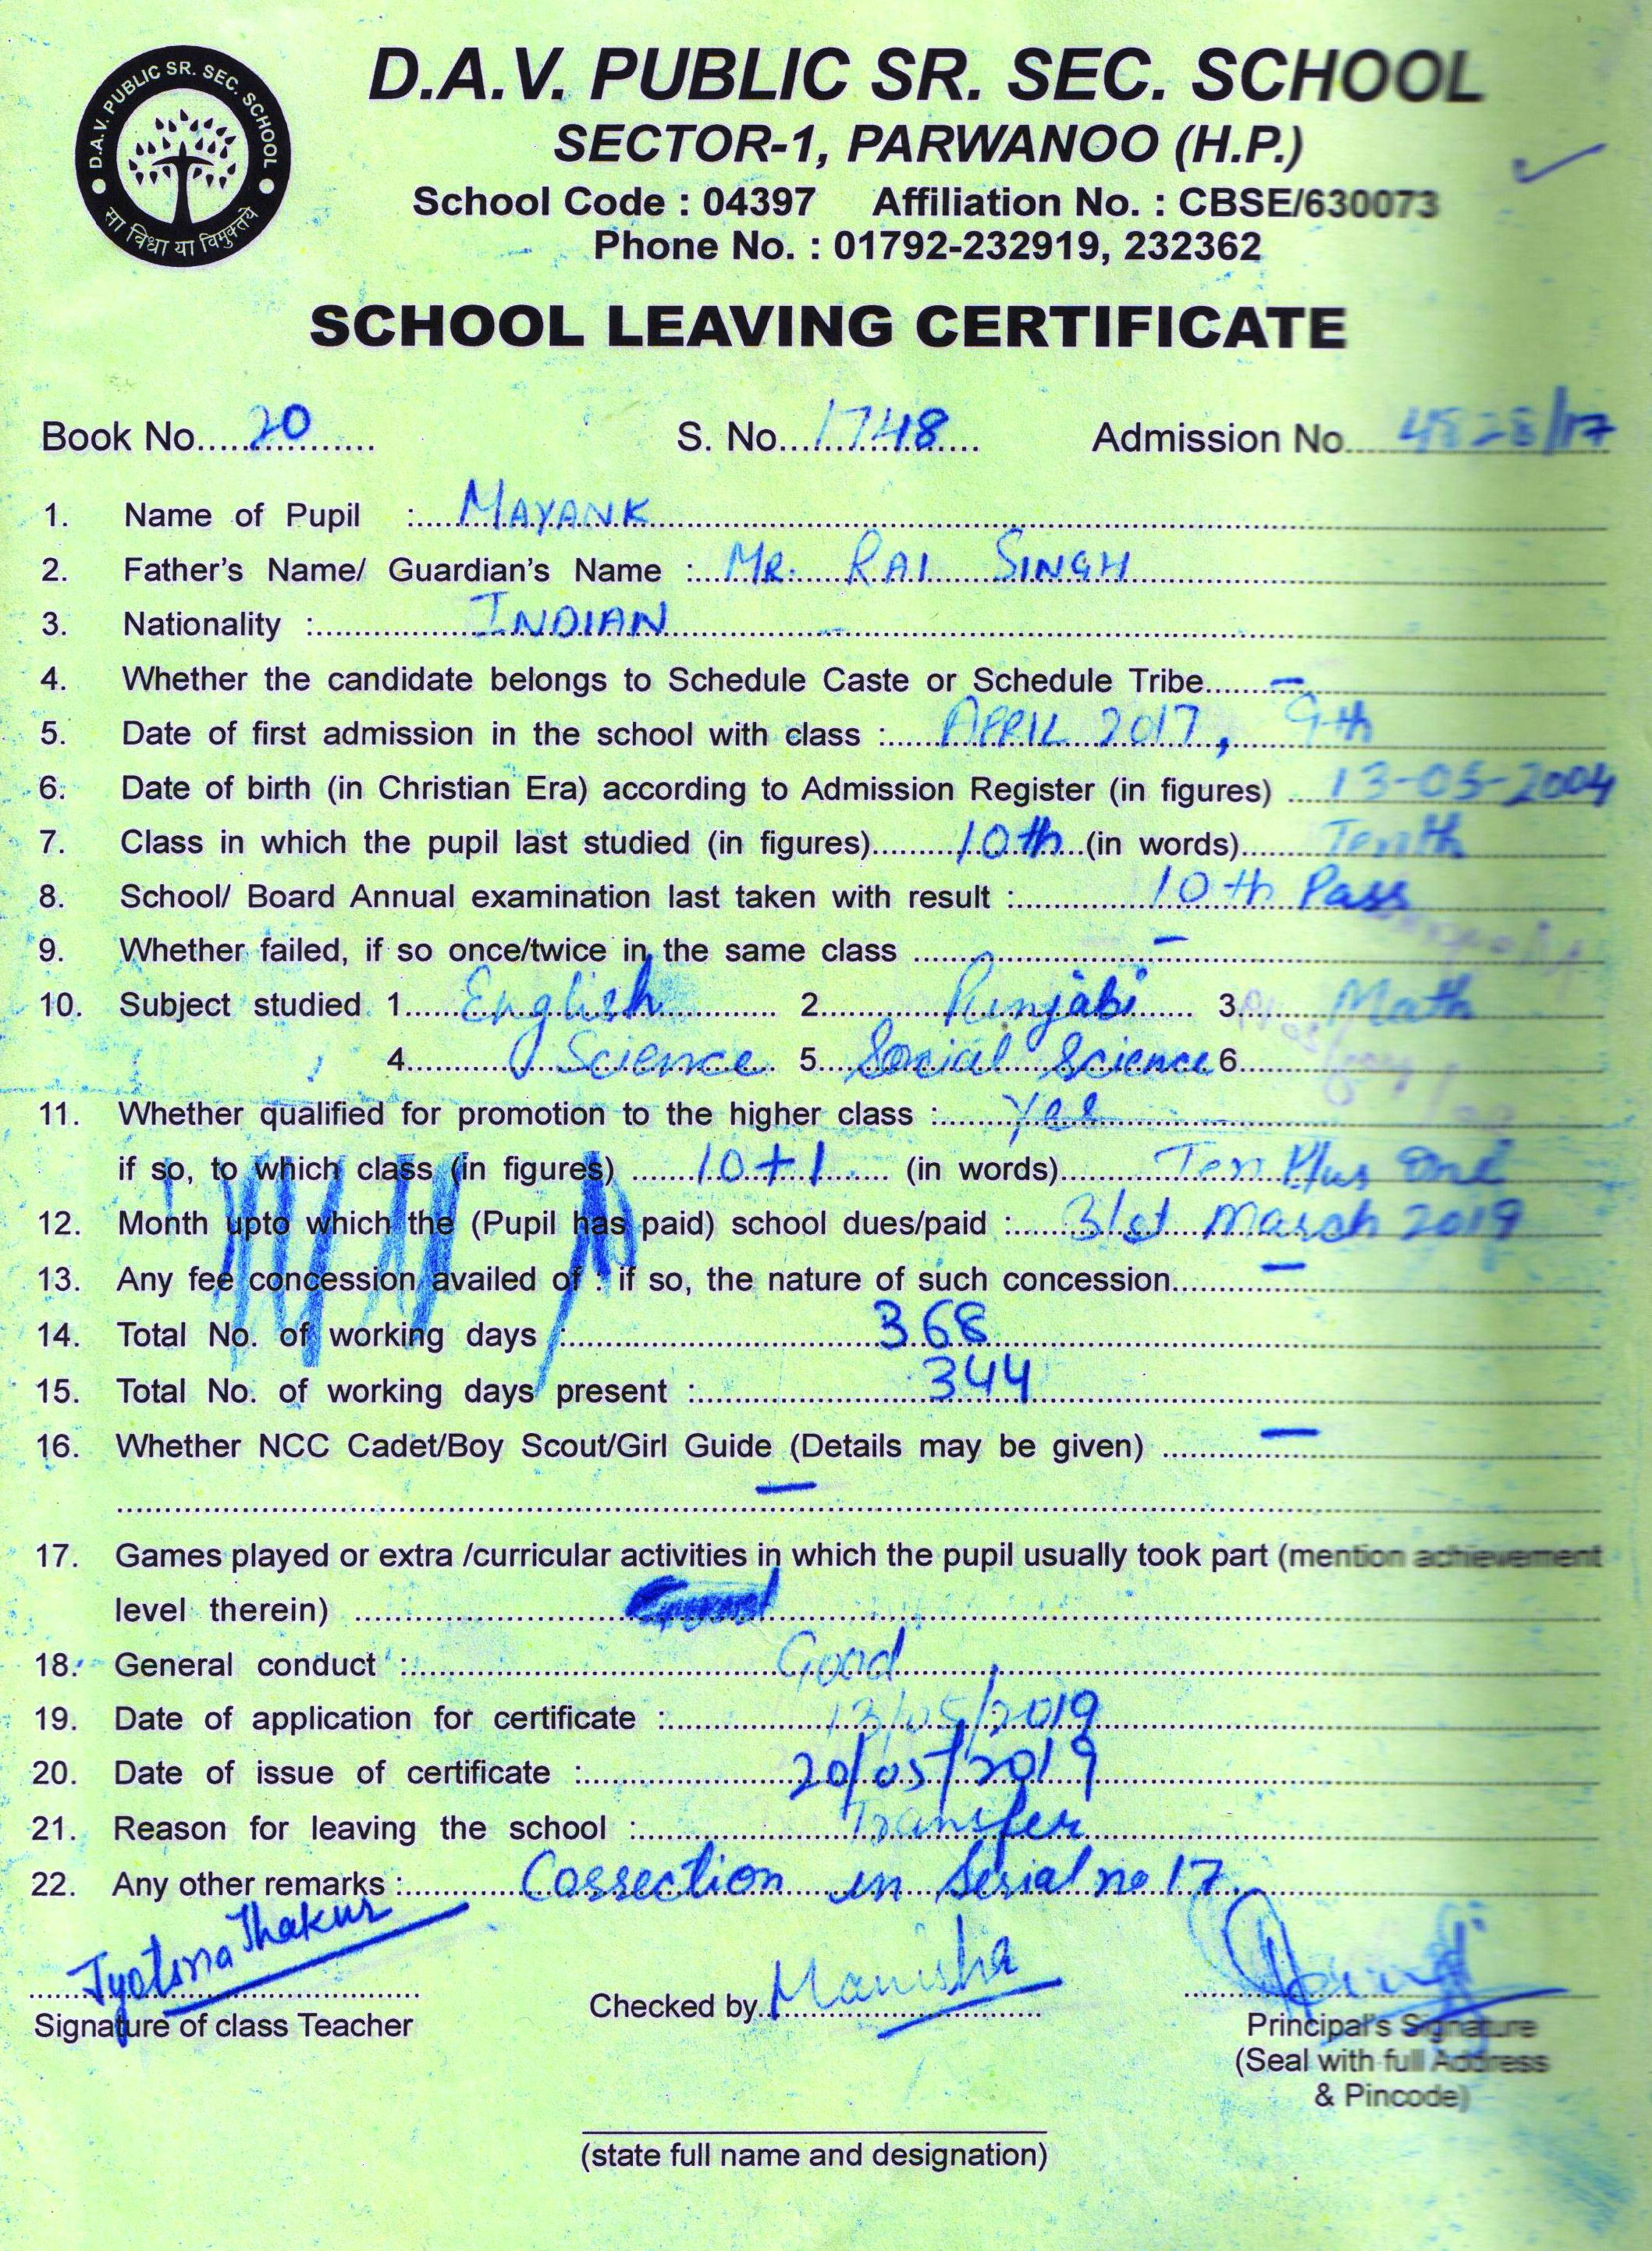 D.A.V. PUBLIC SR. SEC. SCHOOL
सा विद्या या विमुक्तये
D.A.V. PUBLIC SR. SEC. SCHOOL
SECTOR-1, PARWANOO (H.P.)
School Code : 04397 Affiliation No. : CBSE/630073
Phone No. : 01792-232919, 232362
SCHOOL LEAVING CERTIFICATE
Book No. 20 S. No. 1748 Admission No. 4828/17
1. Name of Pupil : MAYANK
2. Father's Name/ Guardian's Name : MR. RAI SINGH
3. Nationality : INDIAN
4. Whether the candidate belongs to Schedule Caste or Schedule Tribe —
5. Date of first admission in the school with class : APRIL 2017, 9th
6. Date of birth (in Christian Era) according to Admission Register (in figures) 13-05-2004
7. Class in which the pupil last studied (in figures) 10th (in words) Tenth
8. School/ Board Annual examination last taken with result : 10th Pass
9. Whether failed, if so once/twice in the same class —
10. Subject studied 1. English 2. Punjabi 3. Math
4. Science 5. Social Science 6.
11. Whether qualified for promotion to the higher class : Yes
if so, to which class (in figures) 10+1 (in words) Ten Plus One
12. Month upto which the (Pupil has paid) school dues/paid : 31st March 2019
13. Any fee concession availed of : if so, the nature of such concession —
14. Total No. of working days : 368
15. Total No. of working days present : 344
16. Whether NCC Cadet/Boy Scout/Girl Guide (Details may be given) —
—
17. Games played or extra /curricular activities in which the pupil usually took part (mention achievement
level therein)
18. General conduct : Good
19. Date of application for certificate : 13/05/2019
20. Date of issue of certificate : 20/05/2019
21. Reason for leaving the school : Transfer
22. Any other remarks : Correction in Serial no 17.
Jyotsna Thakur
Signature of class Teacher
Checked by Manisha
Principal's Signature
(Seal with full Address
& Pincode)
(state full name and designation)